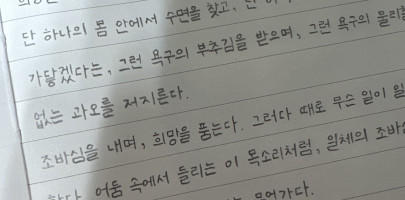 단 하나의 몸 안에서 수면을 찾고, 단
가닿겠다는, 그런 욕구의 부추김을 받으며, 그런 욕구의 물리칠
없는 과오를 저지른다.
조바심을 내며, 희망을 품는다. 그러다 때로 무슨 일이 일
한다. 어둠 속에서 들리는 이 목소리처럼, 일체의 조바심